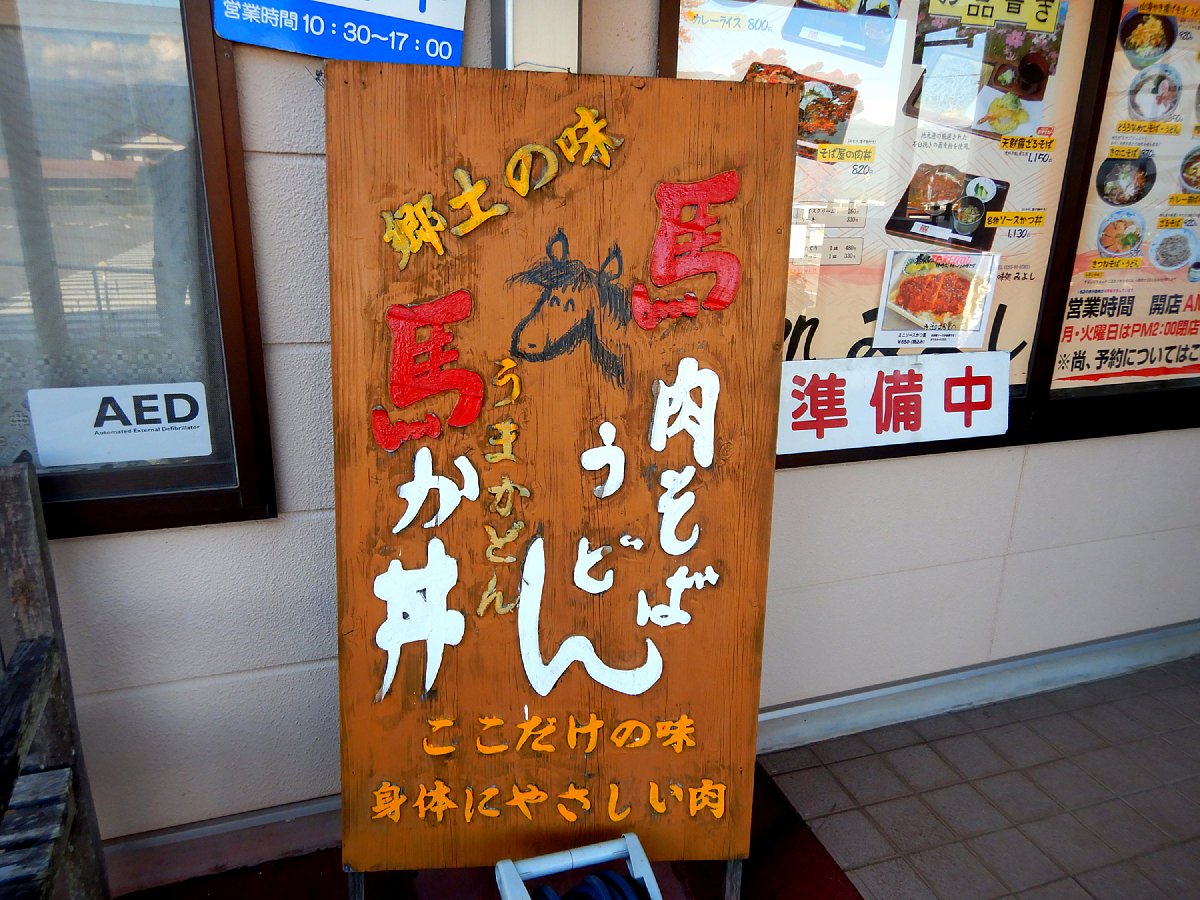 営業時間 10:30~17:00
郷土の味
馬
肉そば
うどん
馬
か丼
うまかどん
ここだけの味
身体にやさしい肉
AED
Automated External Defibrillator
カレーライス 800円
そば屋の肉丼
820
天鮮盛ざるそば
1,150
名物 ソースかつ丼
1,130
ミニソースかつ丼
準備中
きのこそば
きつねそば・うどん
営業時間 開店
月・火曜日はPM2:00閉店
※尚、予約についてはご